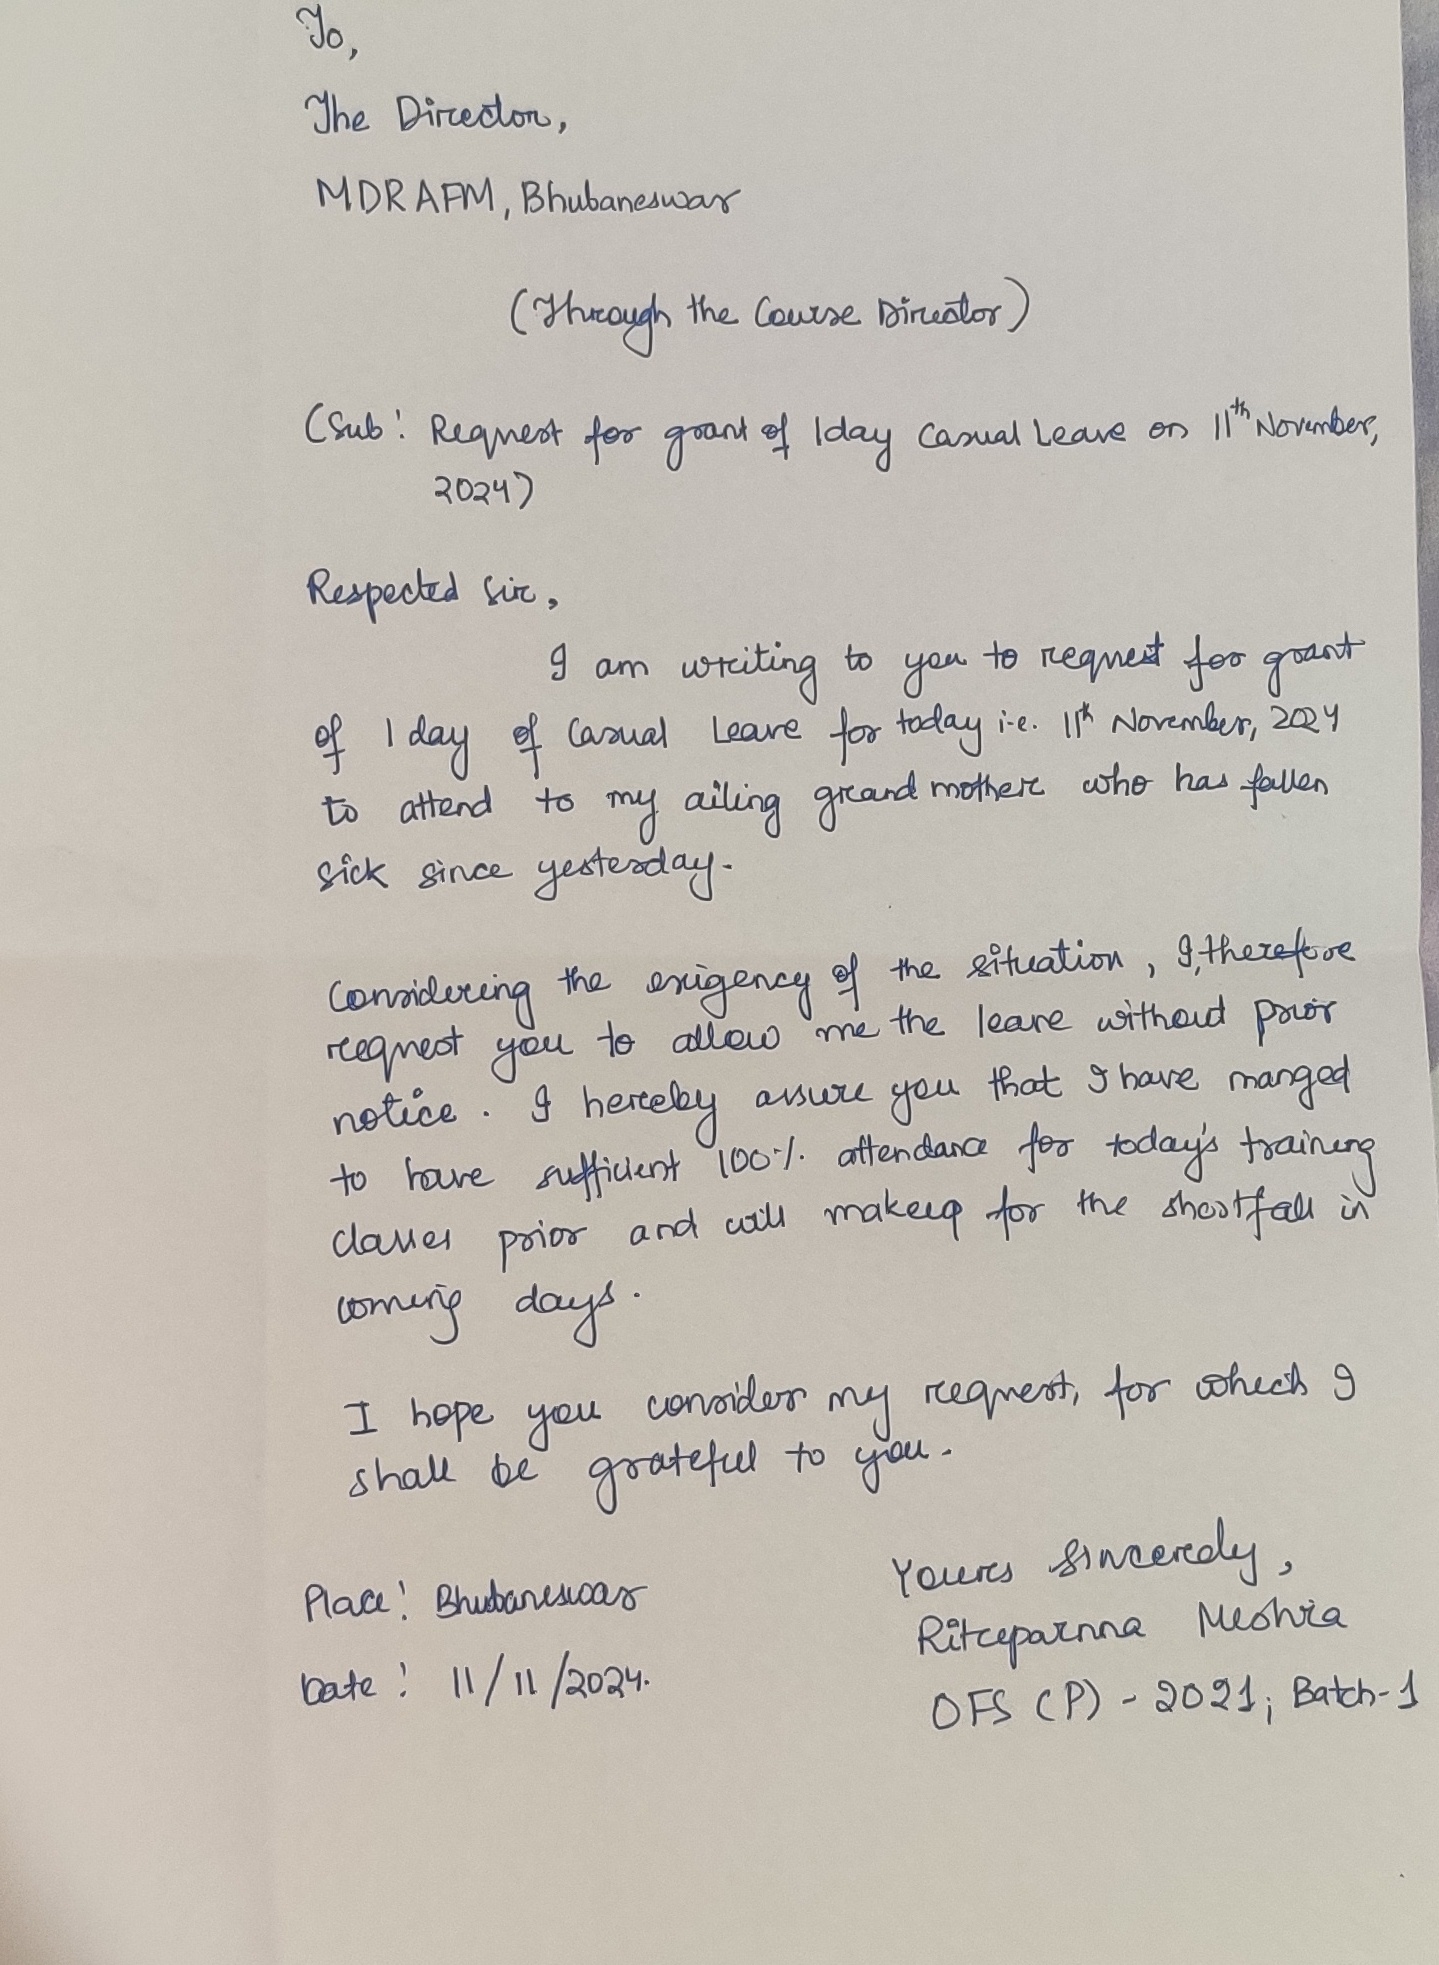 To,
The Director,
MDRAFM, Bhubaneswar
(Through the Course Director)
(Sub: Request for grant of 1day Casual Leave on 11th November,
2024)
Respected Sir,
I am writing to you to request for grant
of 1 day of Casual Leave for today i.e. 11th November, 2024
to attend to my ailing grand mother who has fallen
sick since yesterday.
Considering the exigency of the situation, I, therefore
request you to allow me the leave without prior
notice. I hereby assure you that I have manged
to have sufficient 100% attendance for today's training
classes prior and will makeup for the shortfall in
coming days.
I hope you consider my request, for which I
shall be grateful to you.
Yours Sincerely,
Place: Bhubaneswar
Rituparnna Mishra
Date: 11/11/2024.
OFS (P) - 2021; Batch-1